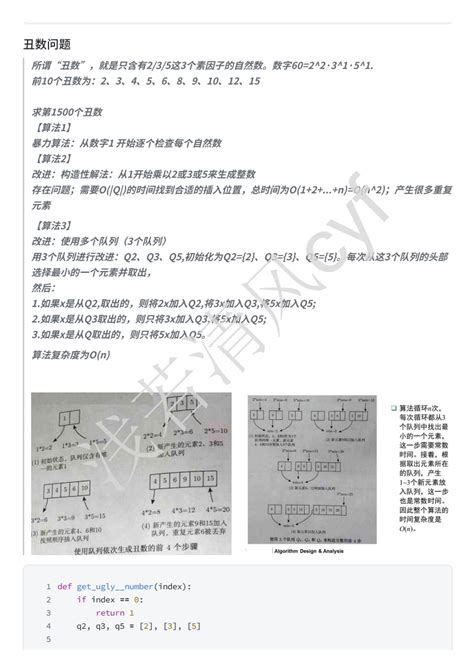 丑数问题
所谓“丑数”，就是只含有2/3/5这3个素因子的自然数。数字60=2^2·3^1·5^1.
前10个丑数为：2、3、4、5、6、8、9、10、12、15
求第1500个丑数
【算法1】
暴力算法：从数字1 开始逐个检查每个自然数
【算法2】
改进：构造性解法：从1开始乘以2或3或5来生成整数
存在问题；需要O(|Q|)的时间找到合适的插入位置，总时间为O(1+2+...+n)=O(n^2)；产生很多重复
元素
【算法3】
改进：使用多个队列（3个队列）
用3个队列进行改进：Q2、Q3、Q5,初始化为Q2={2}、Q3={3}、Q5={5}。每次从这3个队列的头部
选择最小的一个元素并取出，
然后：
1.如果x是从Q2,取出的，则将2x加入Q2,将3x加入Q3,将5x加入Q5;
2.如果x是从Q3取出的，则只将3x加入Q3,将5x加入Q5;
3.如果x是从Q取出的，则只将5x加入Q5。
算法复杂度为O(n)
浅若清风cyf
1
1*2=2 1*3=3 1*5=5
(1) 初始状态，队列仅含有唯
一的元素1
2*2=4 2*3=6 2*5=10
(2) 新产生的元素2、3和5
加入队列
3 4 5 6 10
3*2=6 3*3=9 3*5=15
(3) 新产生的元素4、6和10
按照顺序插入队列
4 5 6 9 10 15
4*2=8 4*3=12 4*5=20
(4) 新产生的元素9和15加入
队列，重复元素6被丢弃
使用队列依次生成丑数的前 4 个步骤
Algorithm Design & Analysis
算法循环n次，
每次循环都从3
个队列中找出最
小的一个元素，
这一步需要常数
时间。接着，根
据取出元素所在
的队列，产生
1~3个新元素放
入队列，这一步
也是常数时间。
因此整个算法的
时间复杂度是
O(n)。
1 def get_ugly__number(index):
2 if index == 0:
3 return 1
4 q2, q3, q5 = [2], [3], [5]
5